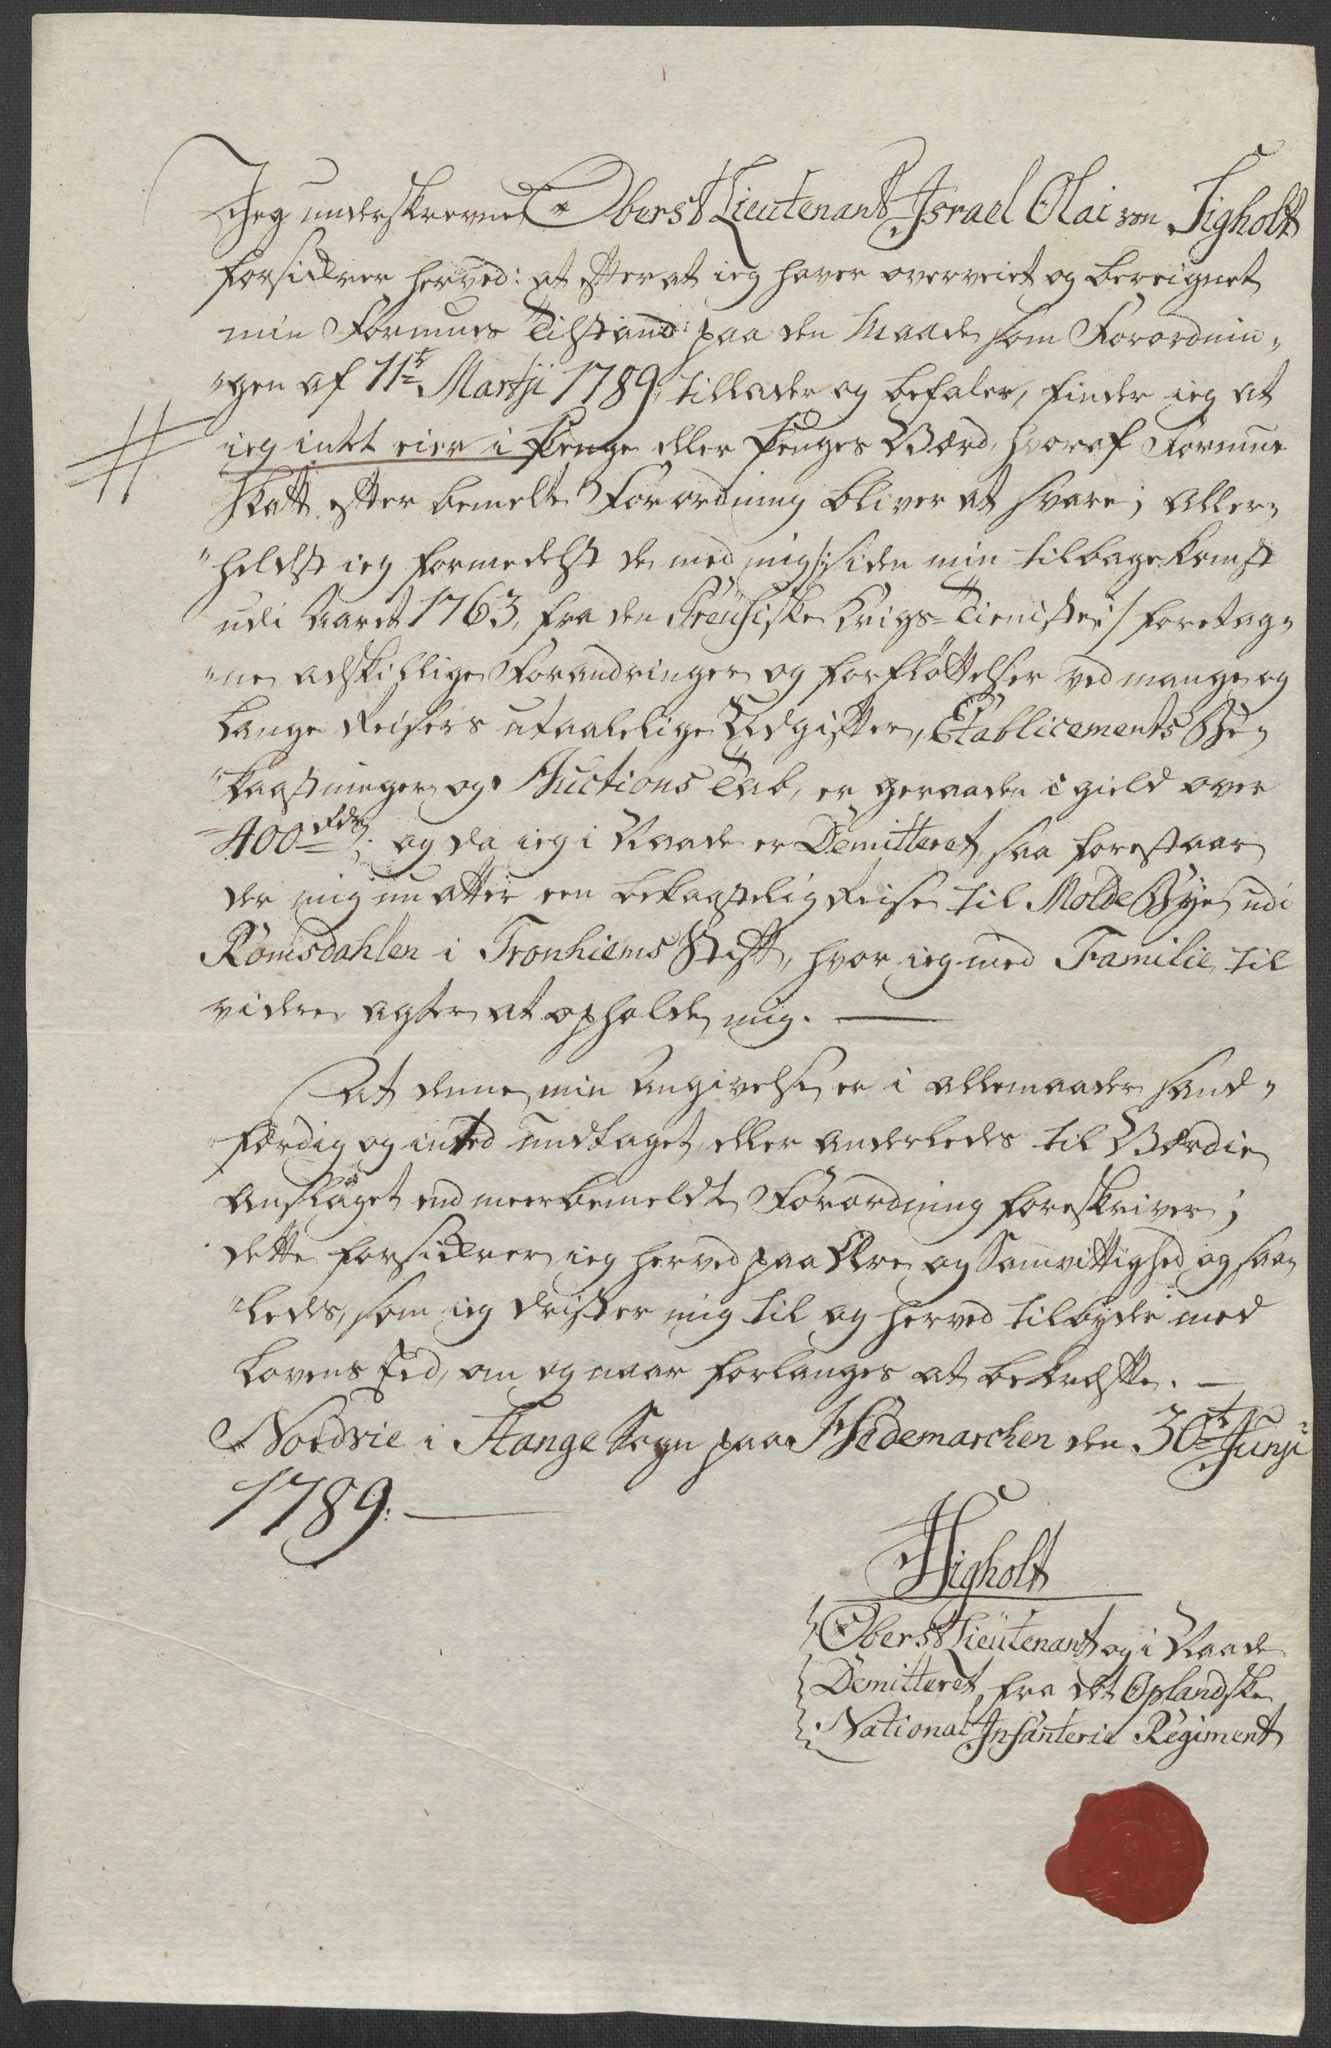 Jeg underskrevne Oberst Lieutenant Israel Olai von Sigholt
forsikkrer herved: at efter at ieg haver overveiet og bereignet
min Formues Tilstand paa den Maade som Forordnin„
„gen af 11te Martji 1789, tillader og befaler, finder ieg at
ieg intet eier i Penge eller Penges Værd, hvoraf Formue
Skatt efter bemelte Forordning bliver at svare; aller„
„heldst ieg formedelst de med mig /: siden min tilbagekomst
udi Aaret 1763, fra den Preusiske Krigs-Tieniste :/ foretag„
„ne adskillige Forandringer og forfløttelser ved mange og
lange Reisers utaalelige Udgifter, Etablicements Be„
„kaastninger og Auctions Tab, er geraaden i gield over
400 rdr; og da ieg i Naade er Demitteret, saa forestaar
der mig nu atter een bekaastelig Reise til Molde Bye udi
Romsdahlen i Tronhiems Stift, hvor ieg med Familie til
videre agter at opholde mig.
At denne min Angivelse er i allemaader sand„
„færdig og inted undtaget eller anderledes til Værdie
anslaget end meerbemeldte Forordning foreskriver;
dette forsikkrer ieg herved paa Ære og Samvittighed og saa„
„ledes, som ieg drister mig til og herved tilbyder med
Lovens Eed, om og naar forlanges at bekræfte.
Nordvie i Stange Sogn paa Hedemarchen den 30te Junji
1789.
Sigholt
Oberst Lieutenant og i Naade
Demitteret fra det Oplandske
National Infanterie Regiment